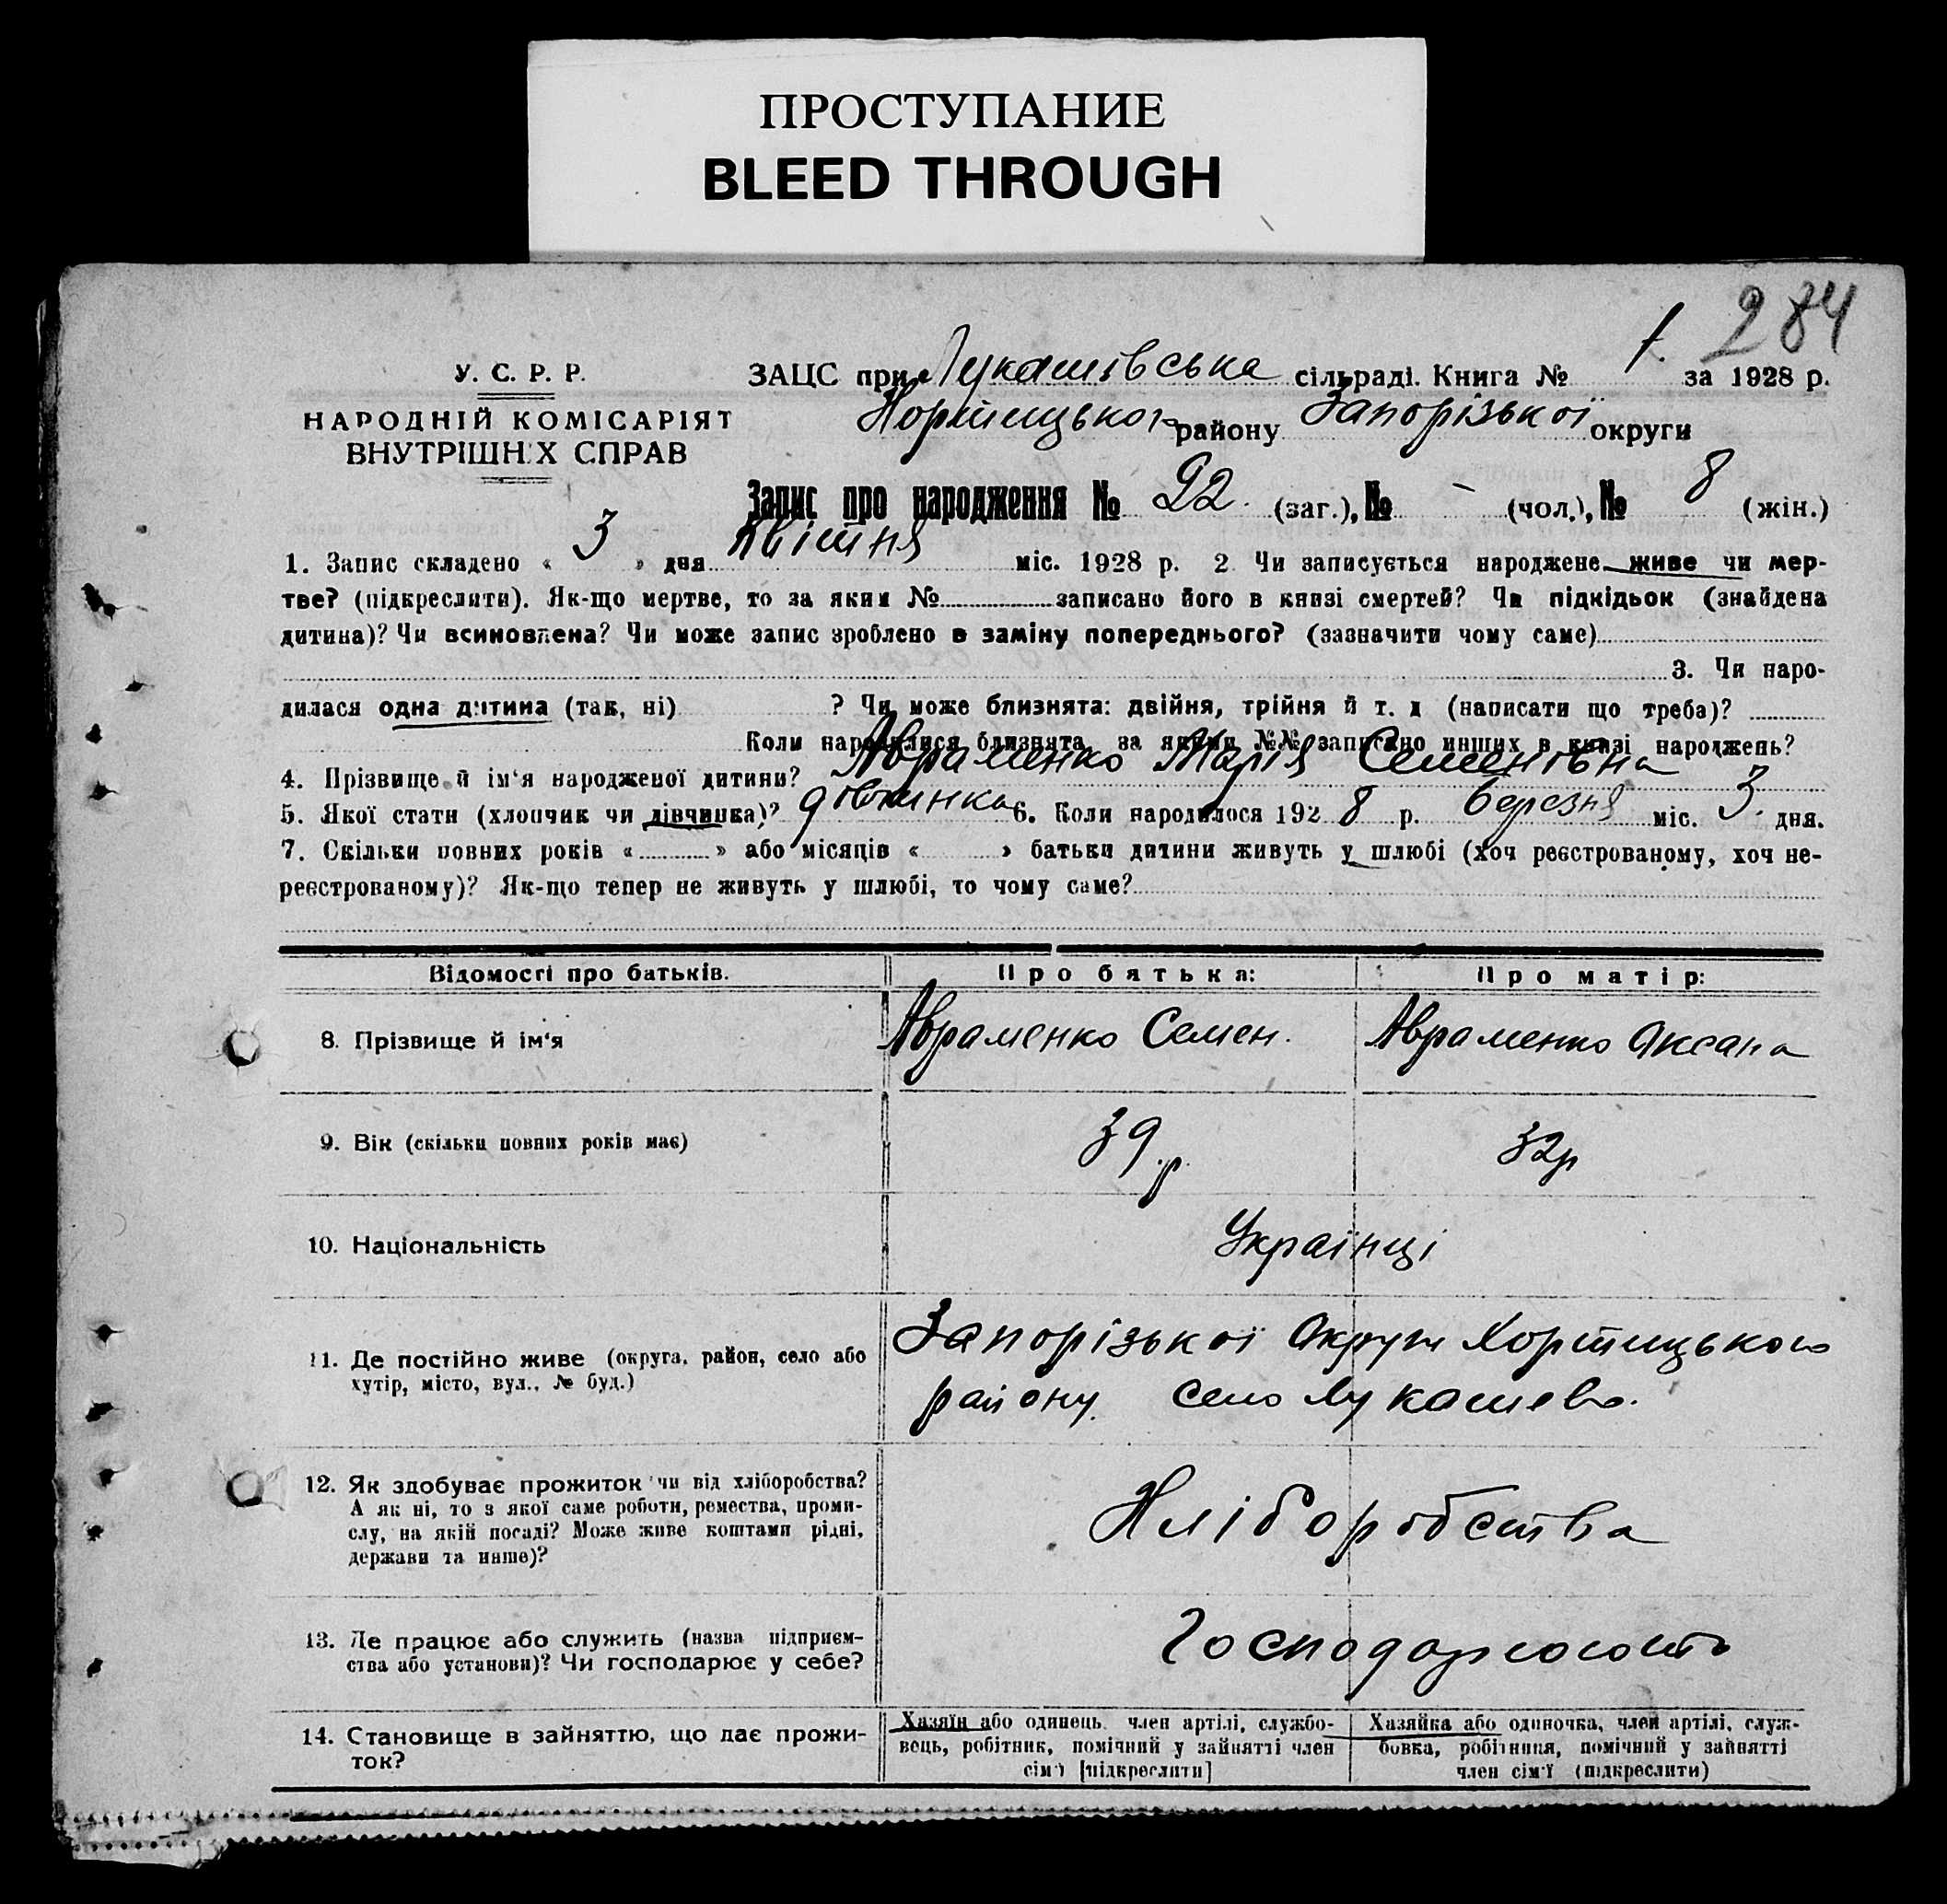 ПРОСТУПАНИЕ
BLEED THROUGH
284
У. С. Р. Р.
НАРОДНІЙ КОМІСАРІЯТ
ВНУТРІШНІХ СПРАВ
ЗАЦС при Лукашівська сільраді. Книга № 1. за 1928 р.
Хортицького району Запорізької округи
Запис про народження № 22. (заг.), № - (чол.), № 8 (жін.)
1. Запис складено « 3 » дня Квітня міс. 1928 р. 2 Чи записується народжене живе чи мер-
тве? (підкреслити). Як-що мертве, то за яким № записано його в книзі смертей? Чи підкідьок (знайдена
дитина)? Чи всиновлена? Чи може запис зроблено в заміну попереднього? (зазначити чому саме)
3. Чи наро-
дилася одна дитина (так, ні) ? Чи може близнята: двійня, трійня й т. д (написати що треба)?
Коли народилися близнята, за якими №№ записано инших в книзі народжень?
4. Прізвище й ім‘я народженої дитини? Авраменко Марія Семенівна
5. Якої стати (хлопчик чи дівчинка)? дівчинка 6. Коли народилося 1928 р. березня міс. 3. дня.
7. Скільки повних років « » або місяців « » батьки дитини живуть у шлюбі (хоч реєстрованому, хоч не-
реєстрованому)? Як-що тепер не живуть у шлюбі, то чому саме?
Відомості про батьків. Про батька: Про матір:
8. Прізвище й ім‘я Авраменко Семен. Авраменко Оксана
9. Вік (скільки повних років має) 39 р. 32 р
10. Національність Українці
11. Де постійно живе (округа, район, село або
хутір, місто, вул., № буд.)
Запорізької Округи Хортицького
району. село Лукашево.
12. Як здобуває прожиток чи від хліборобства?
А як ні, то з якої саме роботи, ремества, проми-
слу, на якій посаді? Може живе коштами рідні,
держави та инше)?
Хліборобства
13. Де працює або служить (назва підприєм-
ства або установи)? Чи господарює у себе?
Господарюють
14. Становище в зайняттю, що дає прожи-
ток?
Хазяїн або одинець, член артілі, службо-
вець, робітник, помічний у зайнятті член
сім‘ї [підкреслити]
Хазяйка або одиночка, член артілі, служ-
бовка, робітниця, помічний у зайнятті
член сім‘ї (підкреслити)